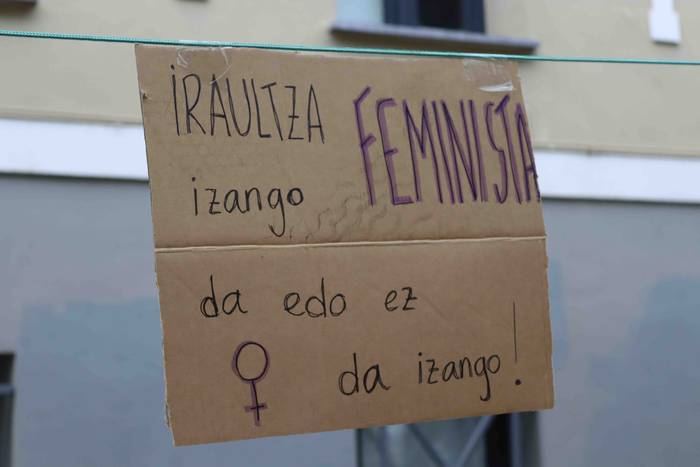 iRAULTZA FEMINISTA
izango
da edo ez
da izango!